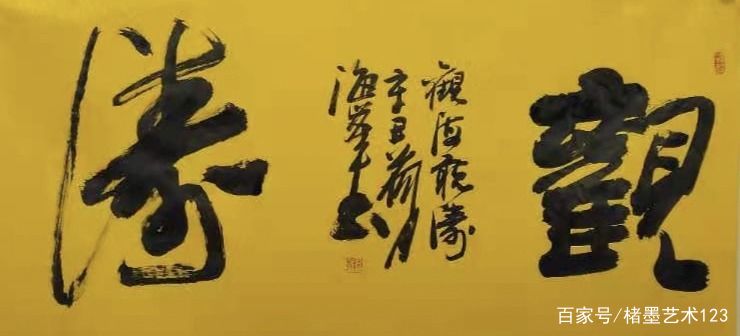 觀
觀海聽濤
辛丑荷月
海 书
濤
百家号/楮墨艺术123